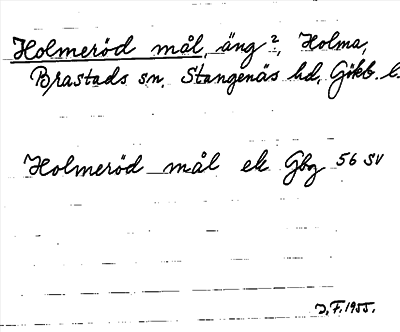 Holmeröd mål, äng ², Holma,
Brastads sn, Stangenäs hd, Gökb. l.
Holmeröd mål ek Gbg 56 SV
J.F. 1955.